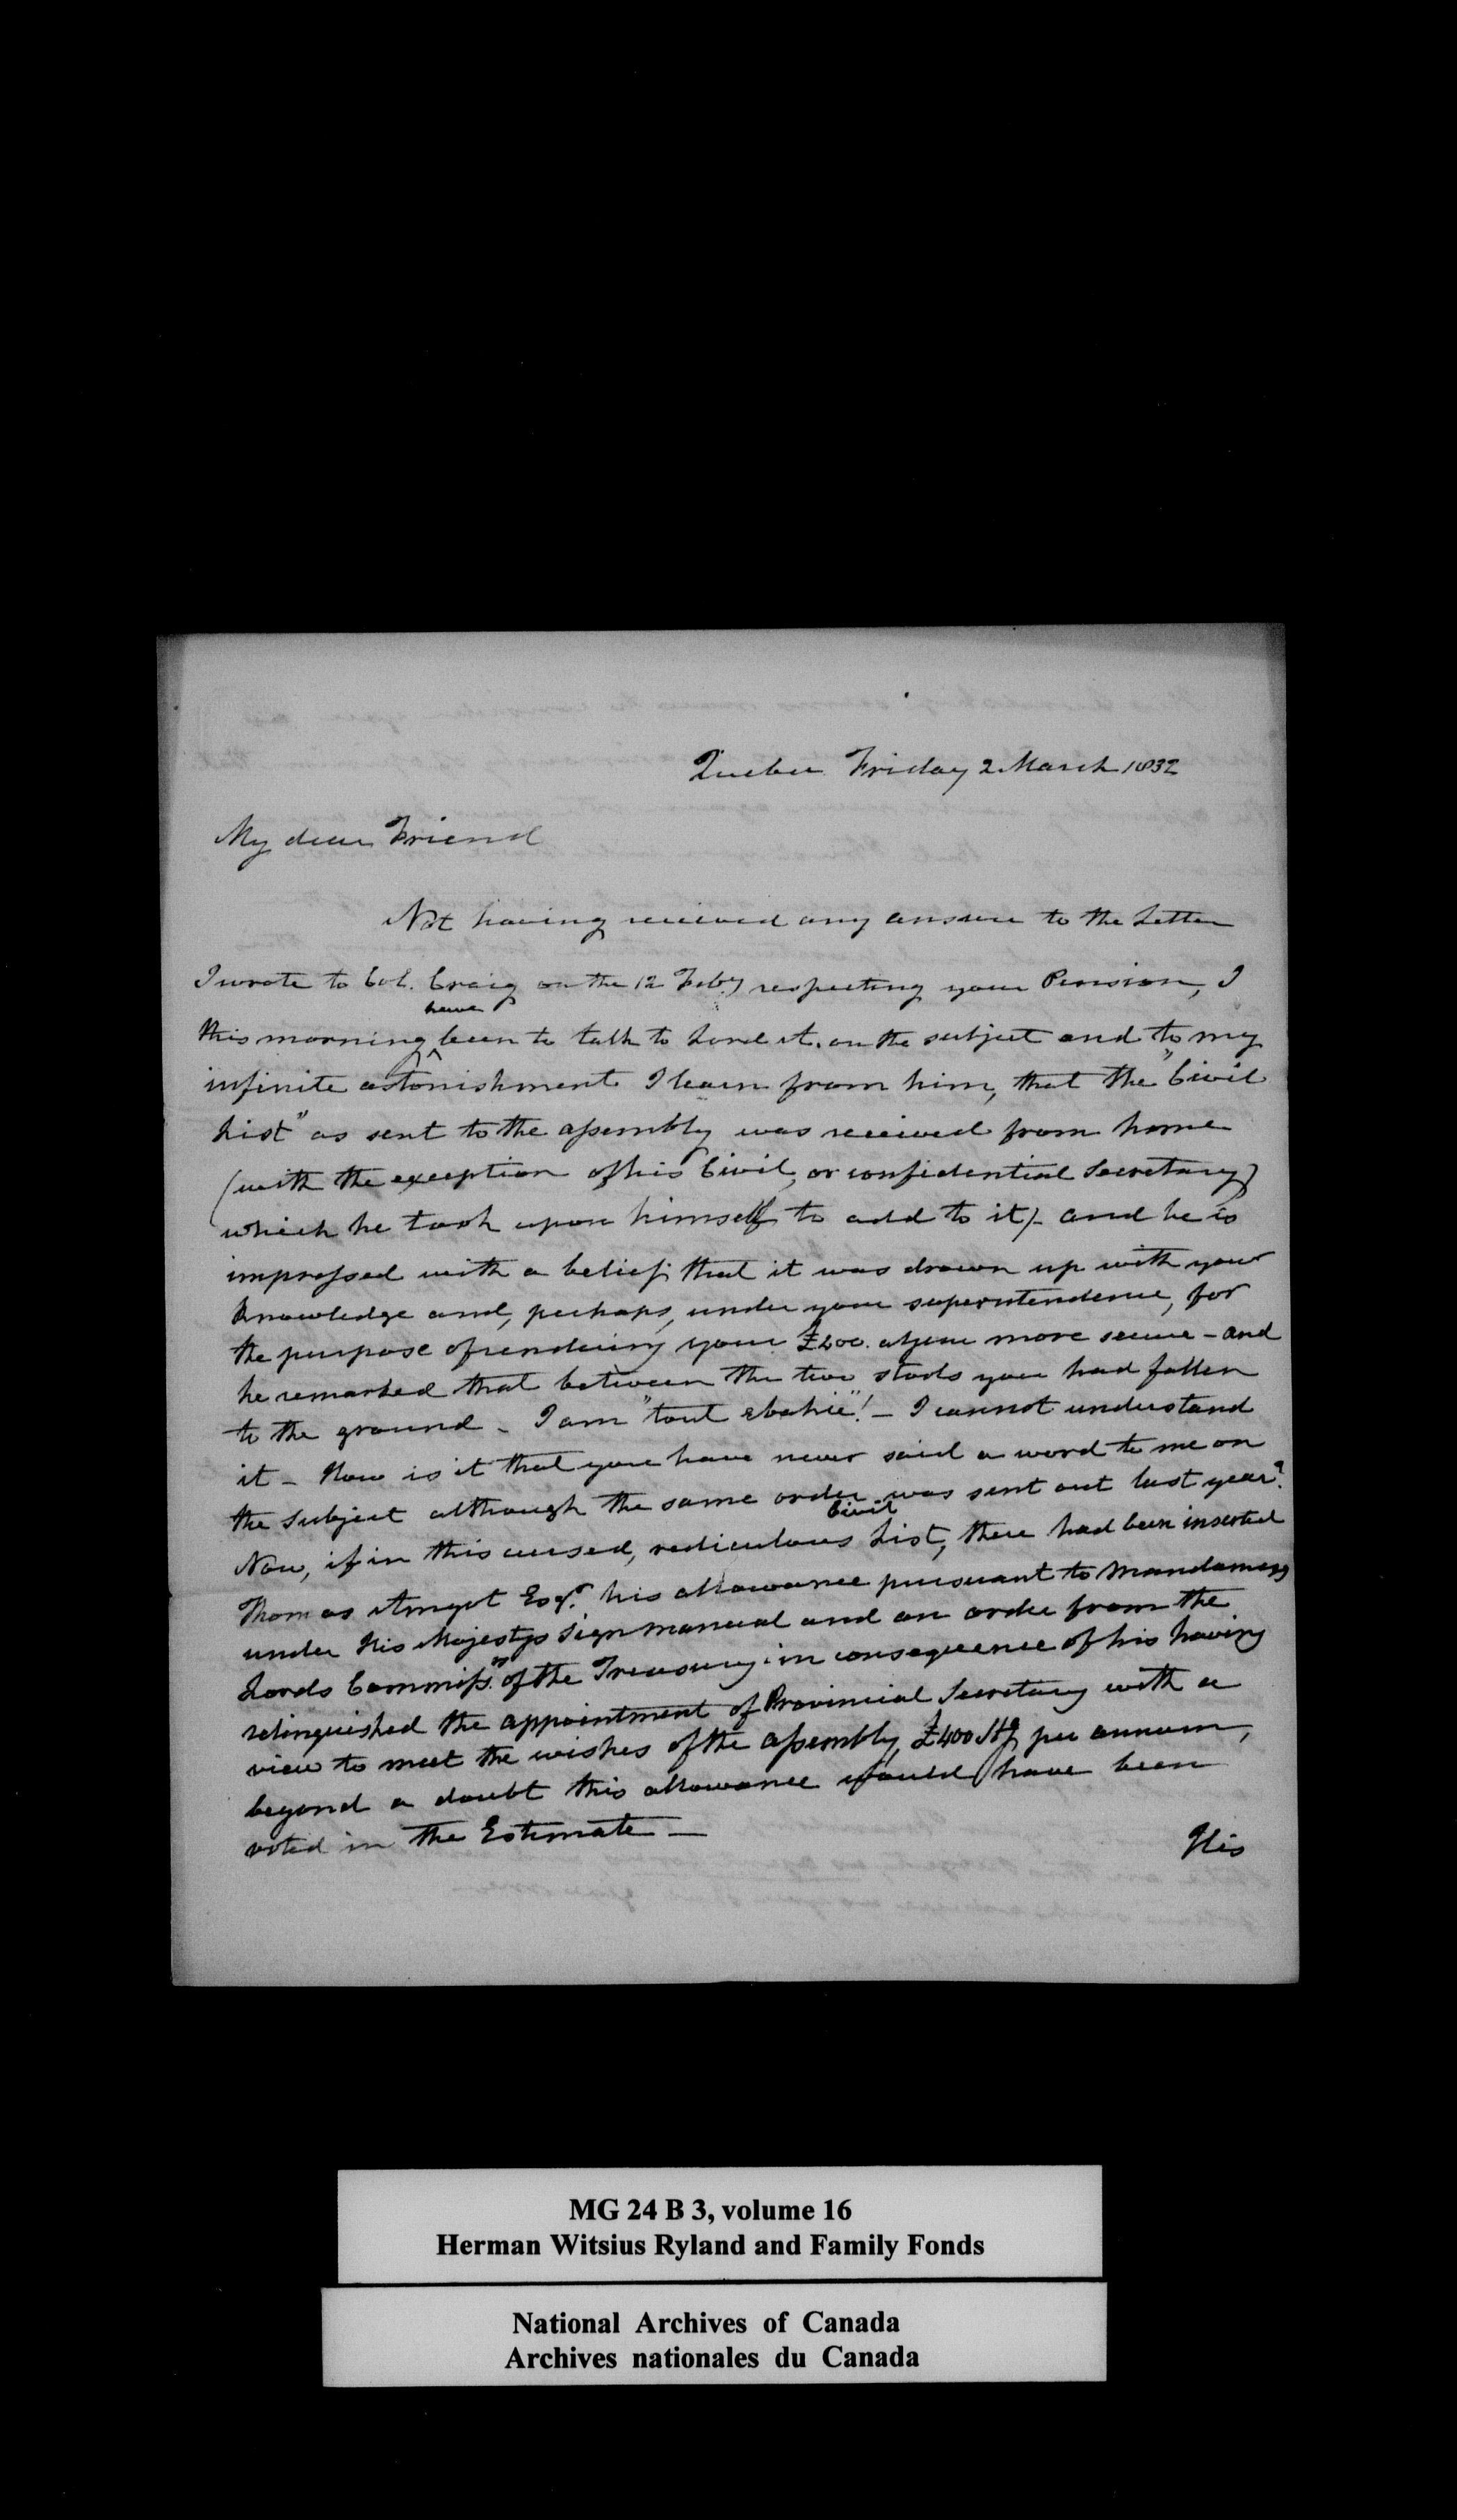 Quebec Friday 2 March 1832
My dear Friend
Not having received any answer to the Letter
I wrote to Col. Craig on the 12 Feby respecting your Pension, I
have
this morning ^ been to talk to Lord A. on the subject and to my
infinite astonishment I learn from him, that the "Civil
List" as sent to the assembly was received from home
(with the exception of his Civil, or confidential Secretary
which he took upon himself to add to it) - and he is
impressed with a belief that it was drawn up with your
knowledge and, perhaps, under your superintendence, for
the purpose of rendering your £400. a year more secure - and
he remarked that between the two stools you had fallen
to the ground - I am "tout ebahie"! - I cannot understand
it - How is it that you have never said a word to me on
the subject although the same order was sent out last year?
Civil
Now, if in this cursed, rediculous List, there had been inserted
Thomas Amyot Esqr. his allowance pursuant to Mandamus
under His Majestys Sign manual and an order from the
Lords Commissrs of the Treasury in consequence of his having
relinquished the appointment of Provincial Secretary with a
view to meet the wishes of the assembly, £400 Stg per annum,
beyond a doubt this allowance would have been
voted in the Estimate -
His
MG 24 B 3, volume 16
Herman Witsius Ryland and Family Fonds
National Archives of Canada
Archives nationales du Canada